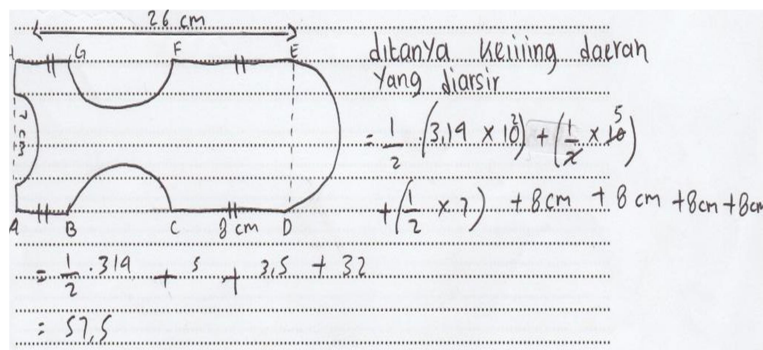 26 cm
G F E
7 cm
A B C 8 cm D
ditanya keliling daerah
yang diarsir
= 1/2 . (3,14 × 10²) + (1/2 × 10) 5
+ (1/2 × 7) + 8 cm + 8 cm + 8 cm + 8 cm
= 1/2 . 314 + 5 + 3,5 + 32
= 57,5